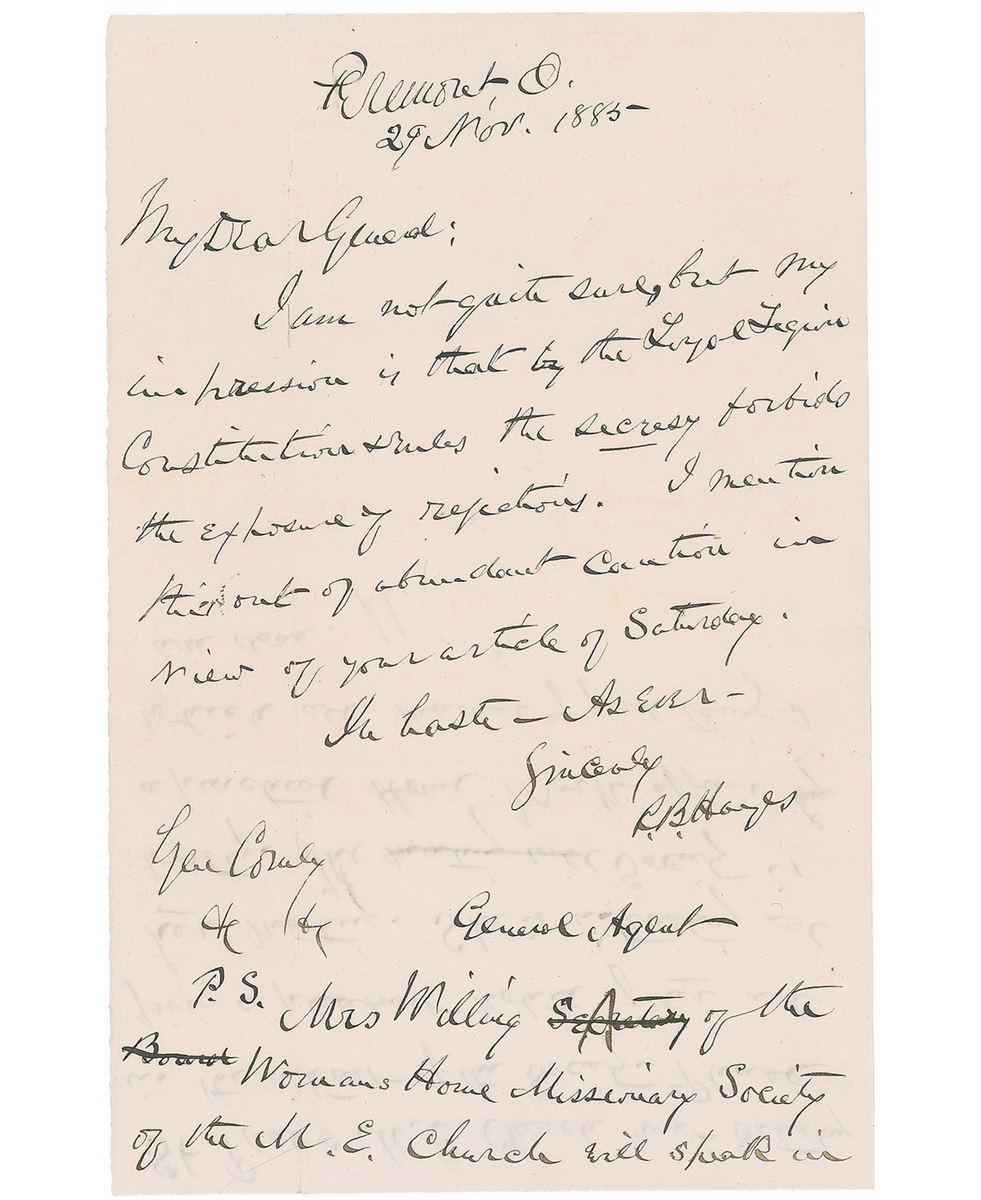 Fremont, O.
29 Nov. 1885
My Dear General:
I am not quite sure, but my
impression is that by the Loyal Legion
Constitution & Rules the secresy forbids
the exposure of rejections. I mention
this out of abundant caution in
view of your article of Saturday.
In haste — As ever —
Sincerely
R.B. Hayes
Gen Comly
&c &c
General Agent
P.S. Mrs Willing Secretary of the
Board Womans Home Missionary Society
of the M. E. Church will speak in